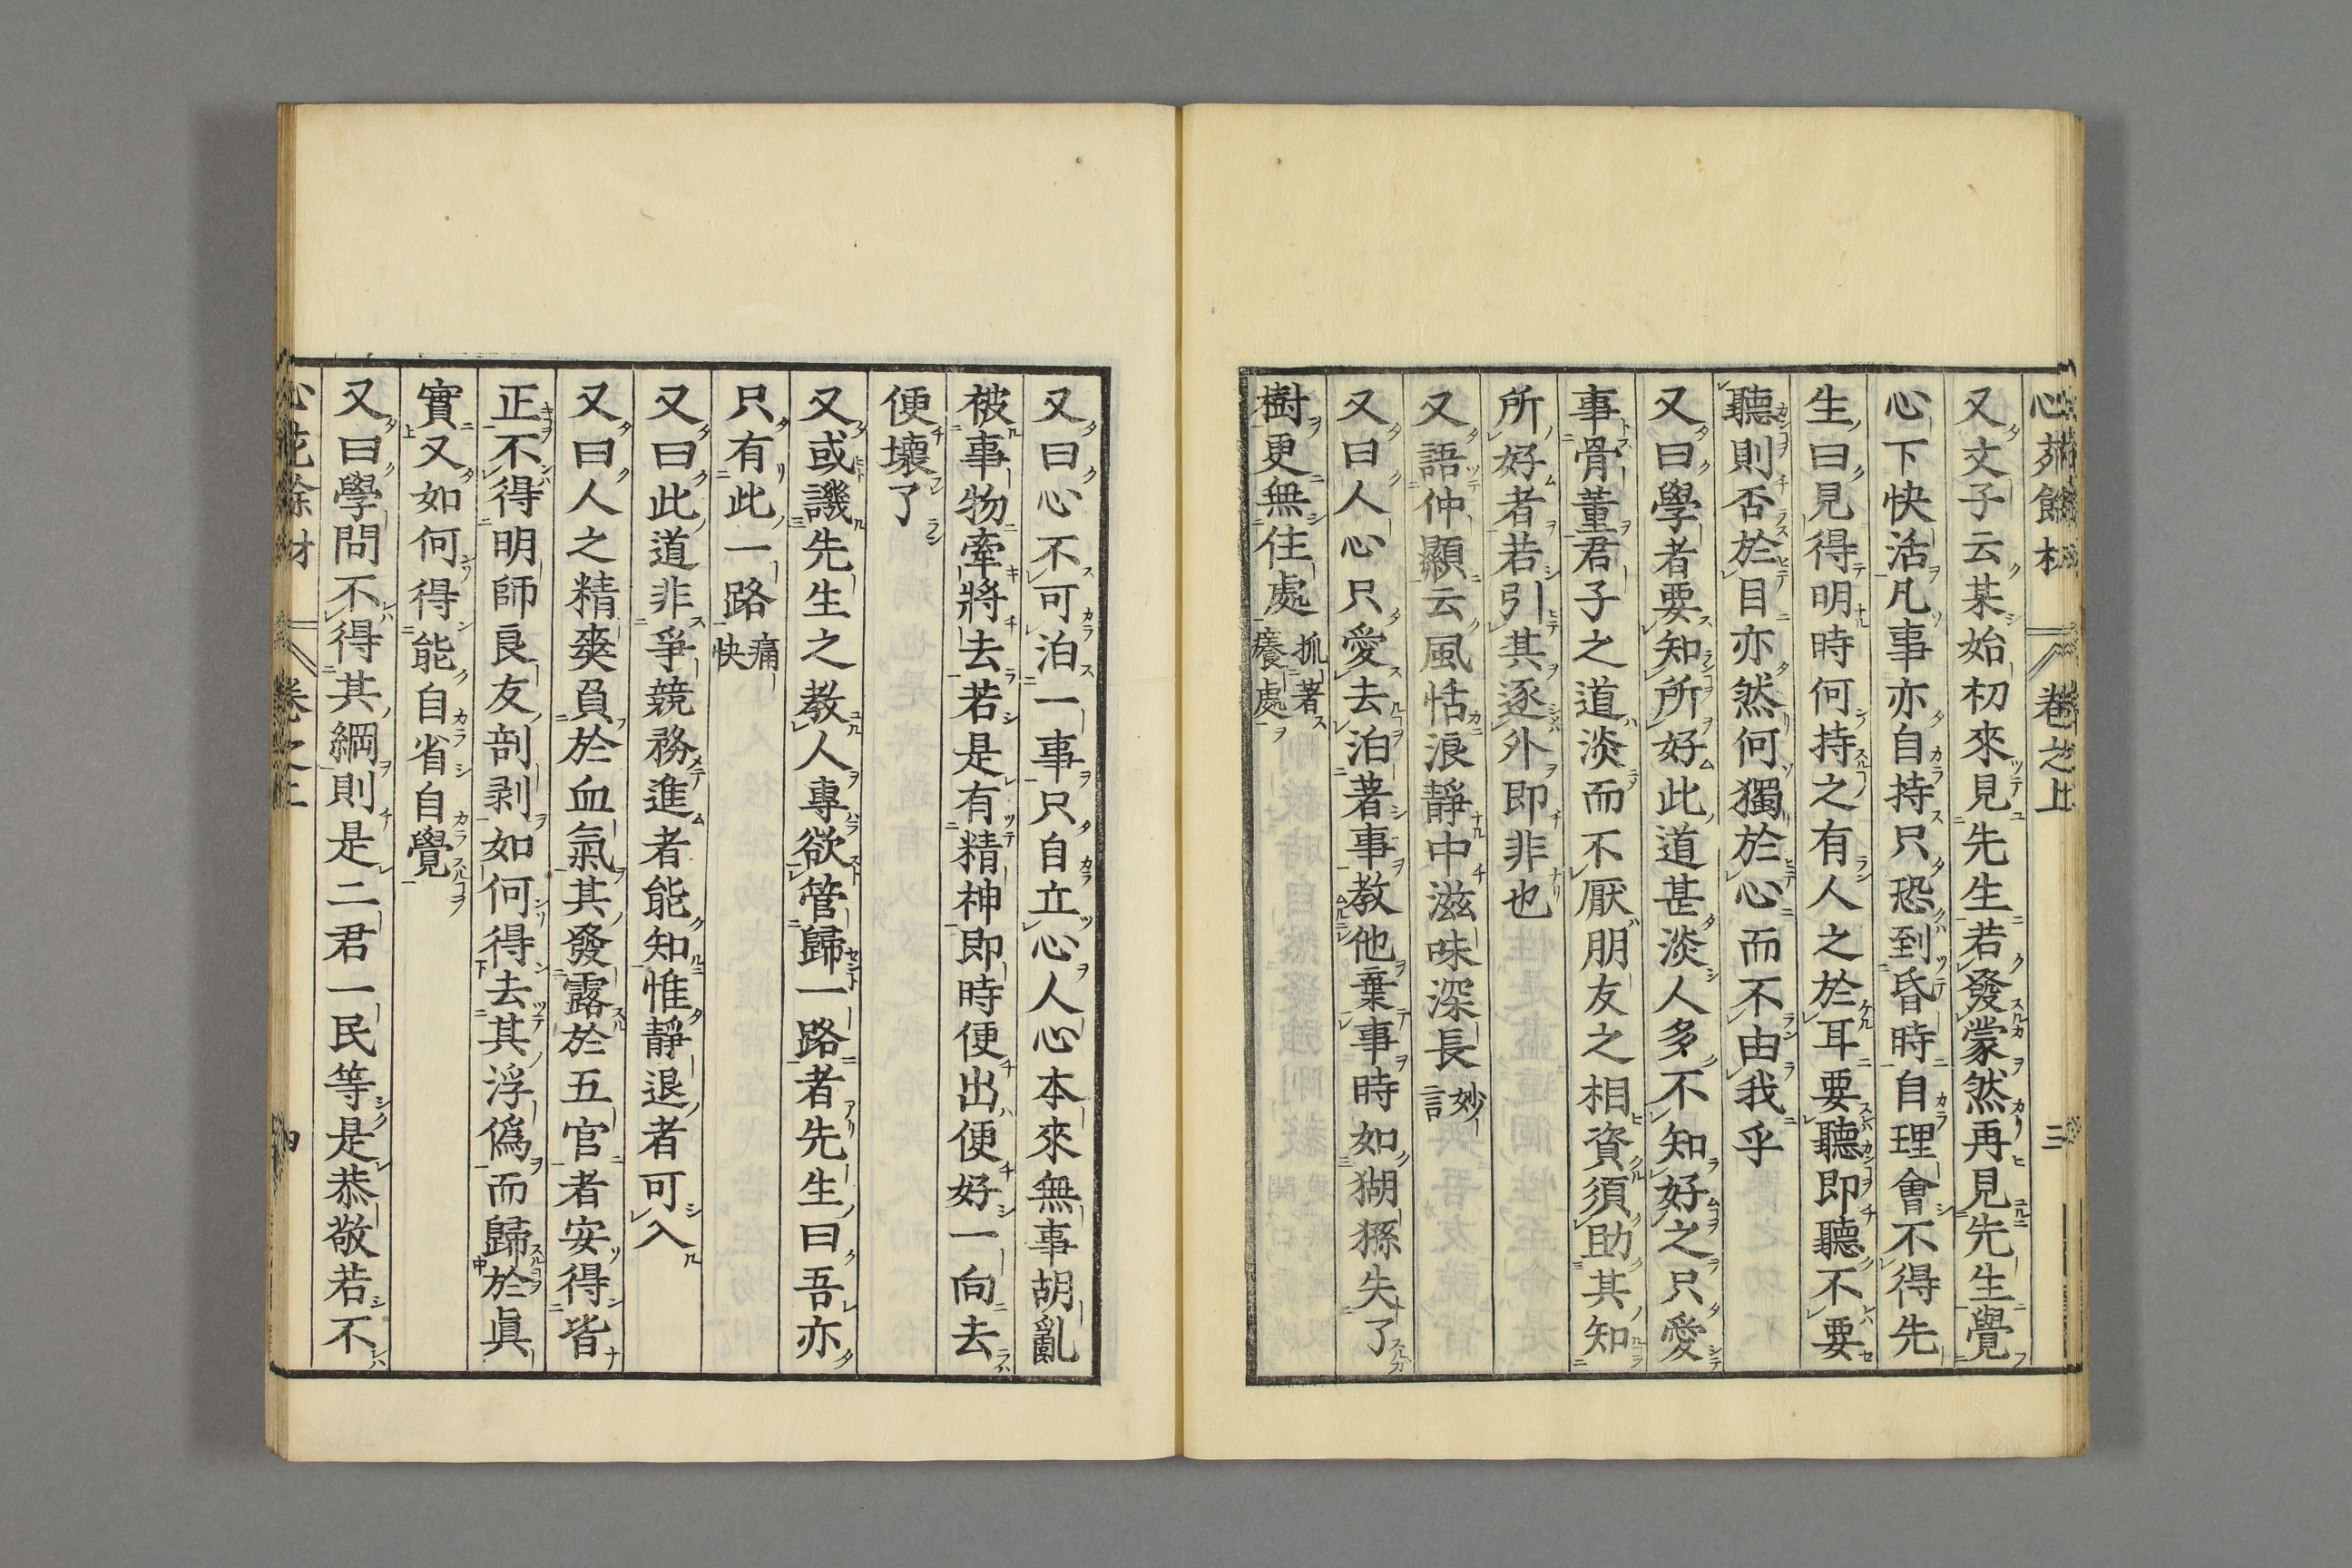 又文子云某始初來見先生若發蒙然再見先生覺
心下快活凡事亦自持只恐到昏時自理會不得先
生曰見得明時何持之有人之於耳要聽即聽不要
聽則否於目亦然何獨於心而不由我乎
又曰學者要知所好此道甚淡人多不知好之只愛
事骨董君子之道淡而不厭朋友之相資須助其知
所好者若引其逐外即非也
又語仲顯云風恬浪靜中滋味深長妙言
又曰人心只愛去泊著事教他棄事時如猢猻失了
樹更無住處抓著癢處
又曰心不可泊一事只自立心人心本來無事胡亂
被事物牽將去若是有精神即時便出便好一向去
便壞了
又或譏先生之教人專欲管歸一路者先生曰吾亦
只有此一路痛快
又曰此道非爭競務進者能知惟靜退者可入
又曰人之精爽負於血氣其發露於五官者安得皆
正不得明師良友剖剥如何得去其浮偽而歸於眞
實又如何得能自省自覺
又曰學問不得其綱則是二君一民等是恭敬若不